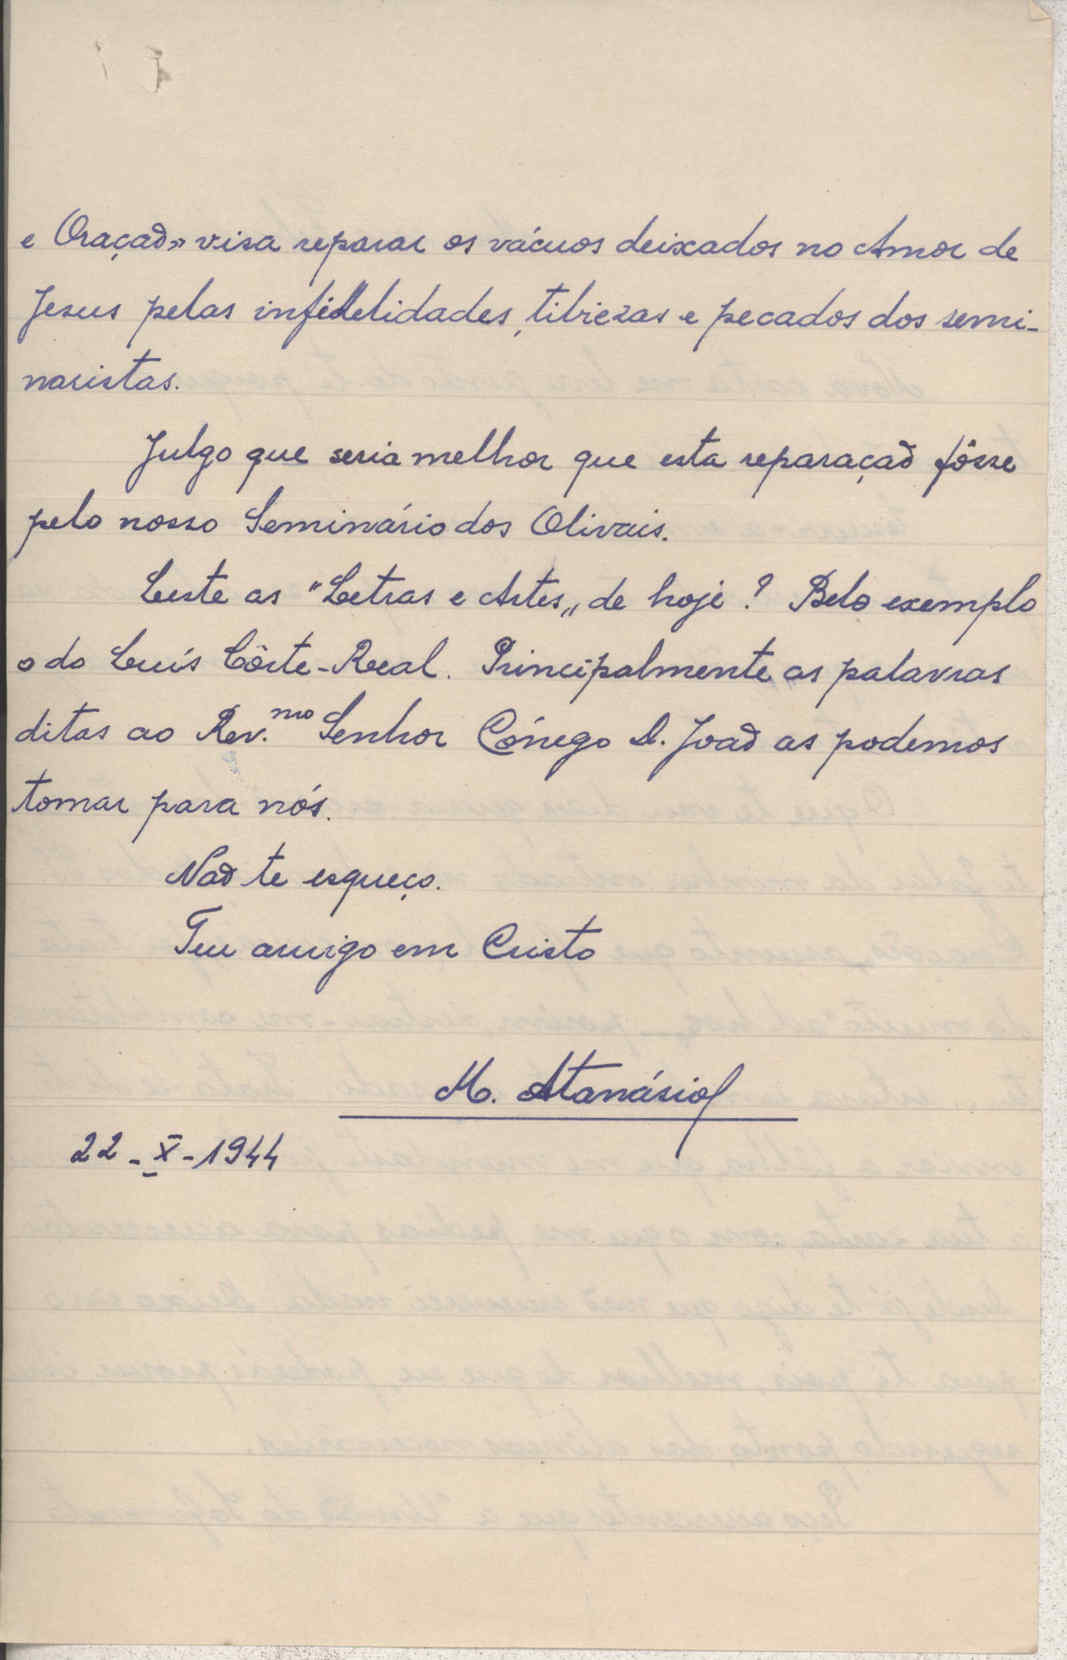 e Oração» visa reparar os vácuos deixados no Amor de
Jesus pelas infidelidades, tibiezas e pecados dos semi-
naristas.
Julgo que seria melhor que esta reparação fôsse
pelo nosso Seminário dos Olivais.
Leste as "Letras e Artes„ de hoje? Belo exemplo
o do Luís Côrte-Real. Principalmente as palavras
ditas ao Rev.mo Senhor Cónego D. João as podemos
tomar para nós.
Não te esqueço.
Teu amigo em Cristo
M. Atanásio
22-X-1944